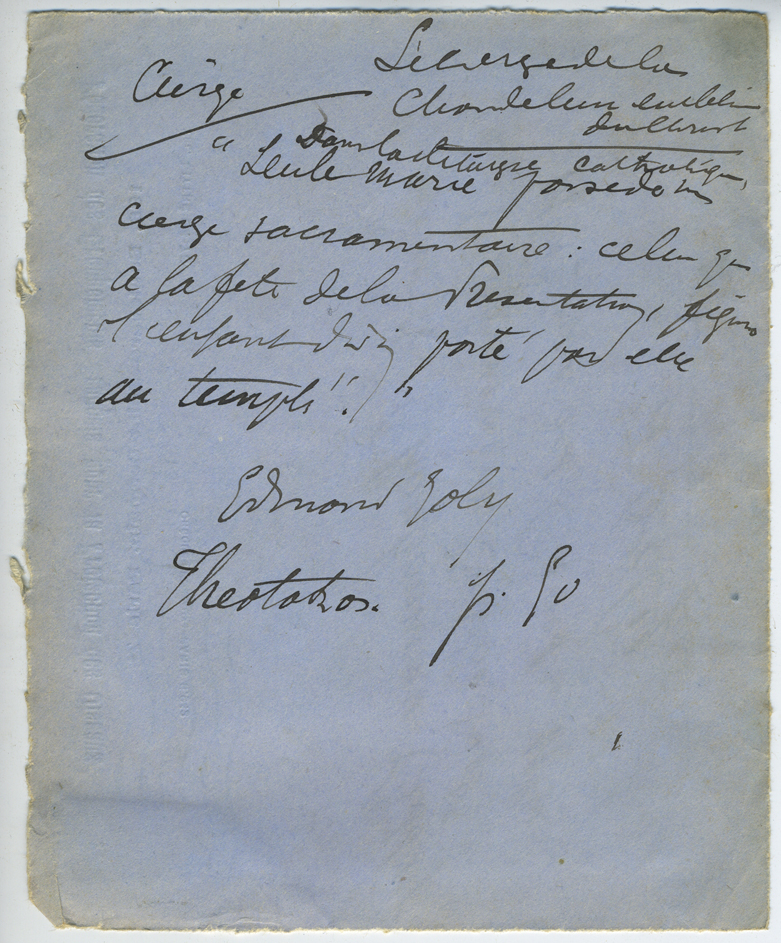 Cierge
Le cierge de la
Chandeleur emblème
du Christ
" Dans la liturgie catholique,
Seule Marie possède un
cierge sacramentaire : celui qui
a la fête de la Présentation, figure
l'enfant divin porté par elle
au temple". "
Edmond Joly
Theotokos. p.